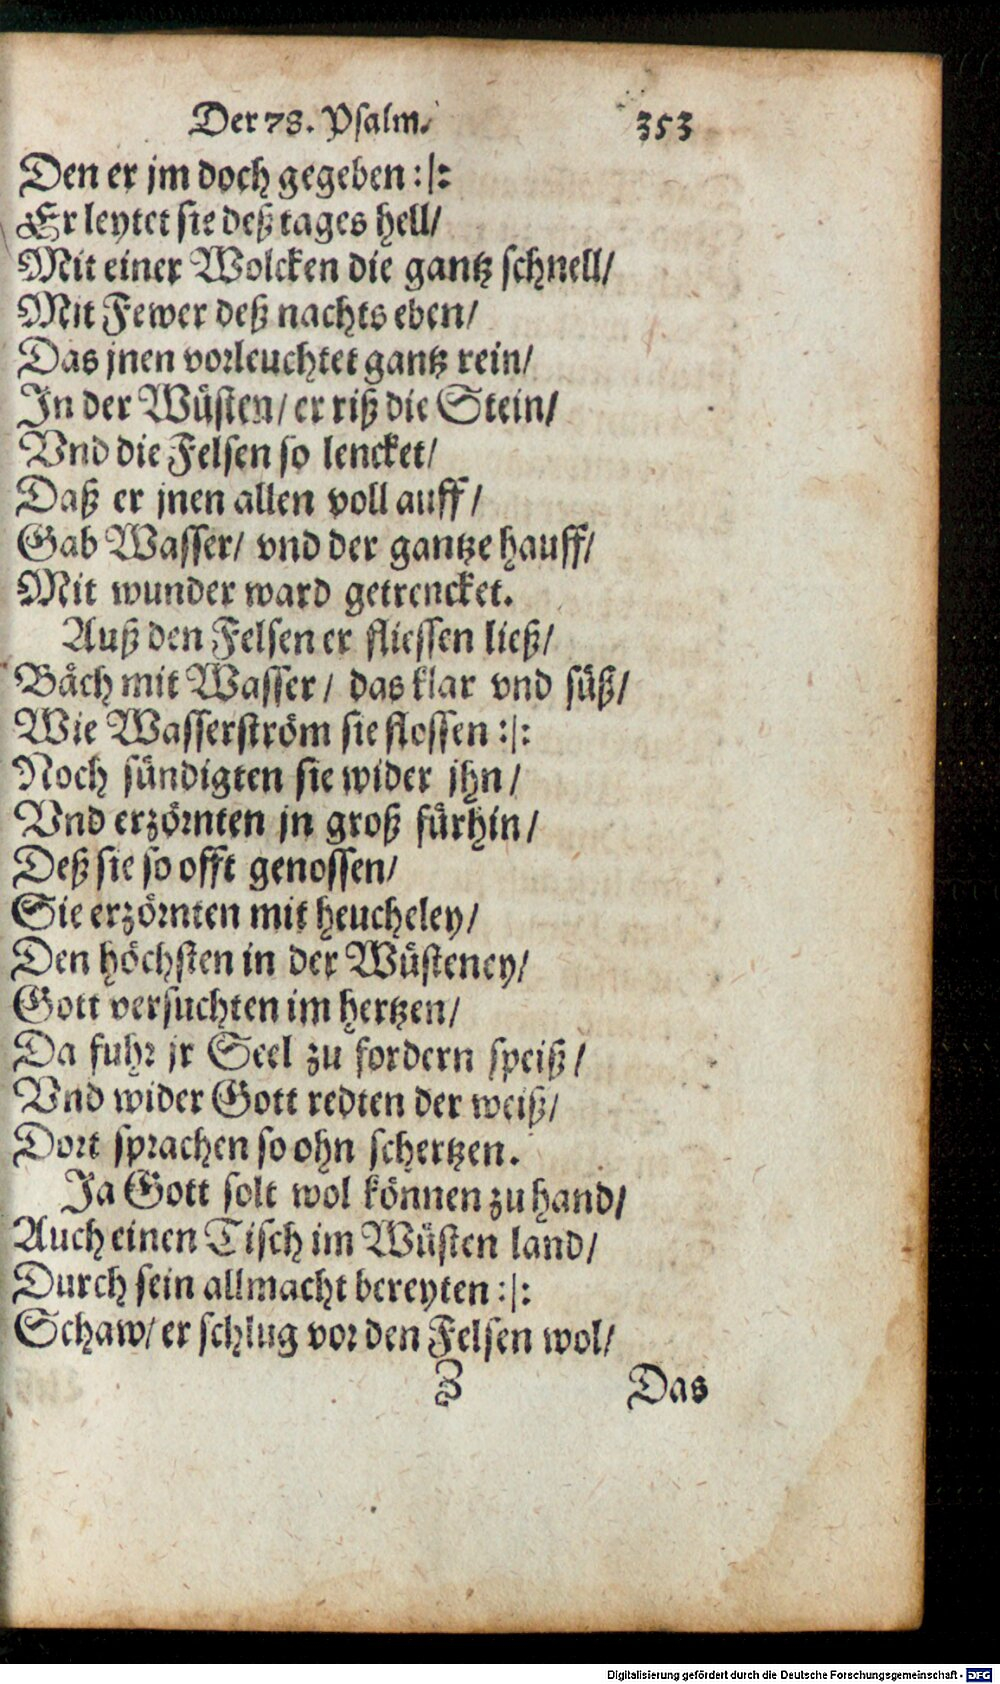 Der 78. Psalm. 353
Den er jm doch gegeben :|:
Er leytet sie deß tages hell/
Mit einer Wolcken die gantz schnell/
Mit Fewer deß nachts eben/
Das jnen vorleuchtet gantz rein/
In der Wüsten/ er riß die Stein/
Vnd die Felsen so lencket/
Daß er jnen allen voll auff/
Gab Wasser/ vnd der gantze hauff/
Mit wunder ward getrencket.
Auß den Felsen er fliessen ließ/
Bäch mit Wasser/ das klar vnd süß/
Wie Wasserström sie flossen :|:
Noch sündigten sie wider jhn/
Vnd erzörnten jn groß fürhin/
Deß sie so offt genossen/
Sie erzörnten mit heucheley/
Den höchsten in der Wüsteney/
Gott versuchten im hertzen/
Da fuhr jr Seel zu fordern speiß/
Vnd wider Gott redten der weiß/
Dort sprachen so ohn schertzen.
Ja Gott solt wol können zu hand/
Auch einen Tisch im Wüsten land/
Durch sein allmacht bereyten :|:
Schaw/ er schlug vor den Felsen wol/
Z Das
Digitalisierung gefördert durch die Deutsche Forschungsgemeinschaft - DFG